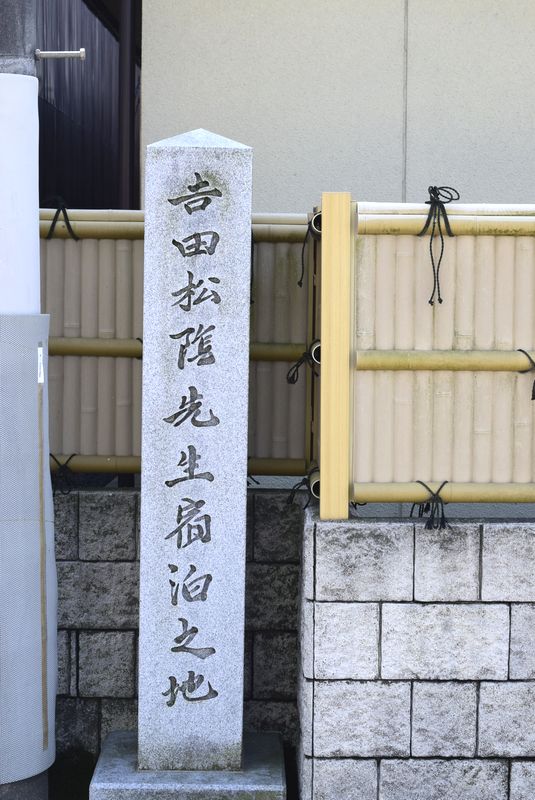 吉田松陰先生宿泊之地